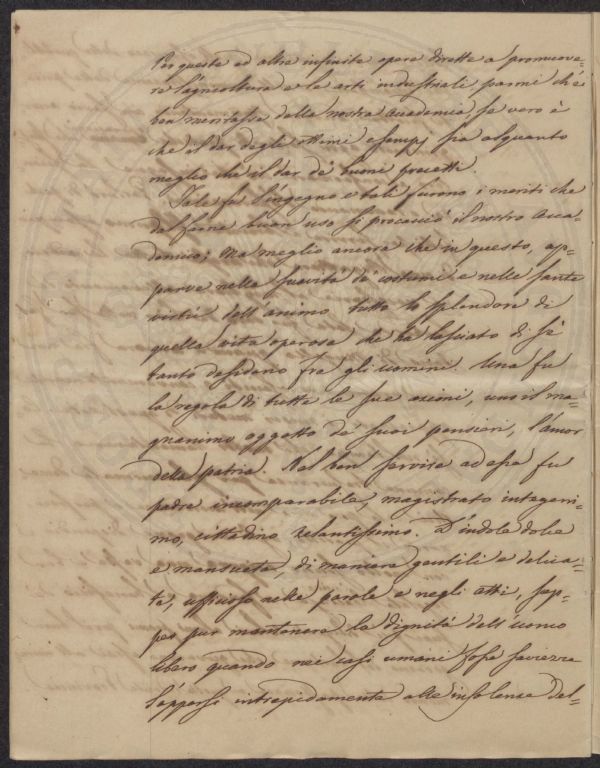 Per queste ed altre infinite opere dirette a promuove=
re l'agricoltura e le arti industriali parmi ch'ei
ben meritasse della nostra Accademia, se vero è
che il dar degli ottimi esempj sia alquanto
meglio che il dar de' buoni precetti.
Tale fu l'ingegno e tali furono i meriti che
dal farne buon uso si procacciò il nostro Acca=
demico; Ma meglio ancora che in questo, ap=
parve nella suavità de' costumi e nelle sante
virtù dell'animo tutto lo splendore di
quella vita operosa che ha lasciato di sè
tanto desiderio fra gli uomini. Una fu
la regola di tutte le sue azioni, uno il ma=
gnanimo oggetto de' suoi pensieri, l'amor
della patria. Nel ben servire ad essa fu
padre incomparabile, magistrato integerri=
mo, cittadino zelantissimo. D'indole dolce
e mansueta, di maniere gentili e delica=
te, ufficioso nelle parole e negli atti, sep=
pe pur mantenere la dignità dell'uomo
libero quando nei casi umani fosse saviezza
l'opporsi intrepidamente alle insolenze del=